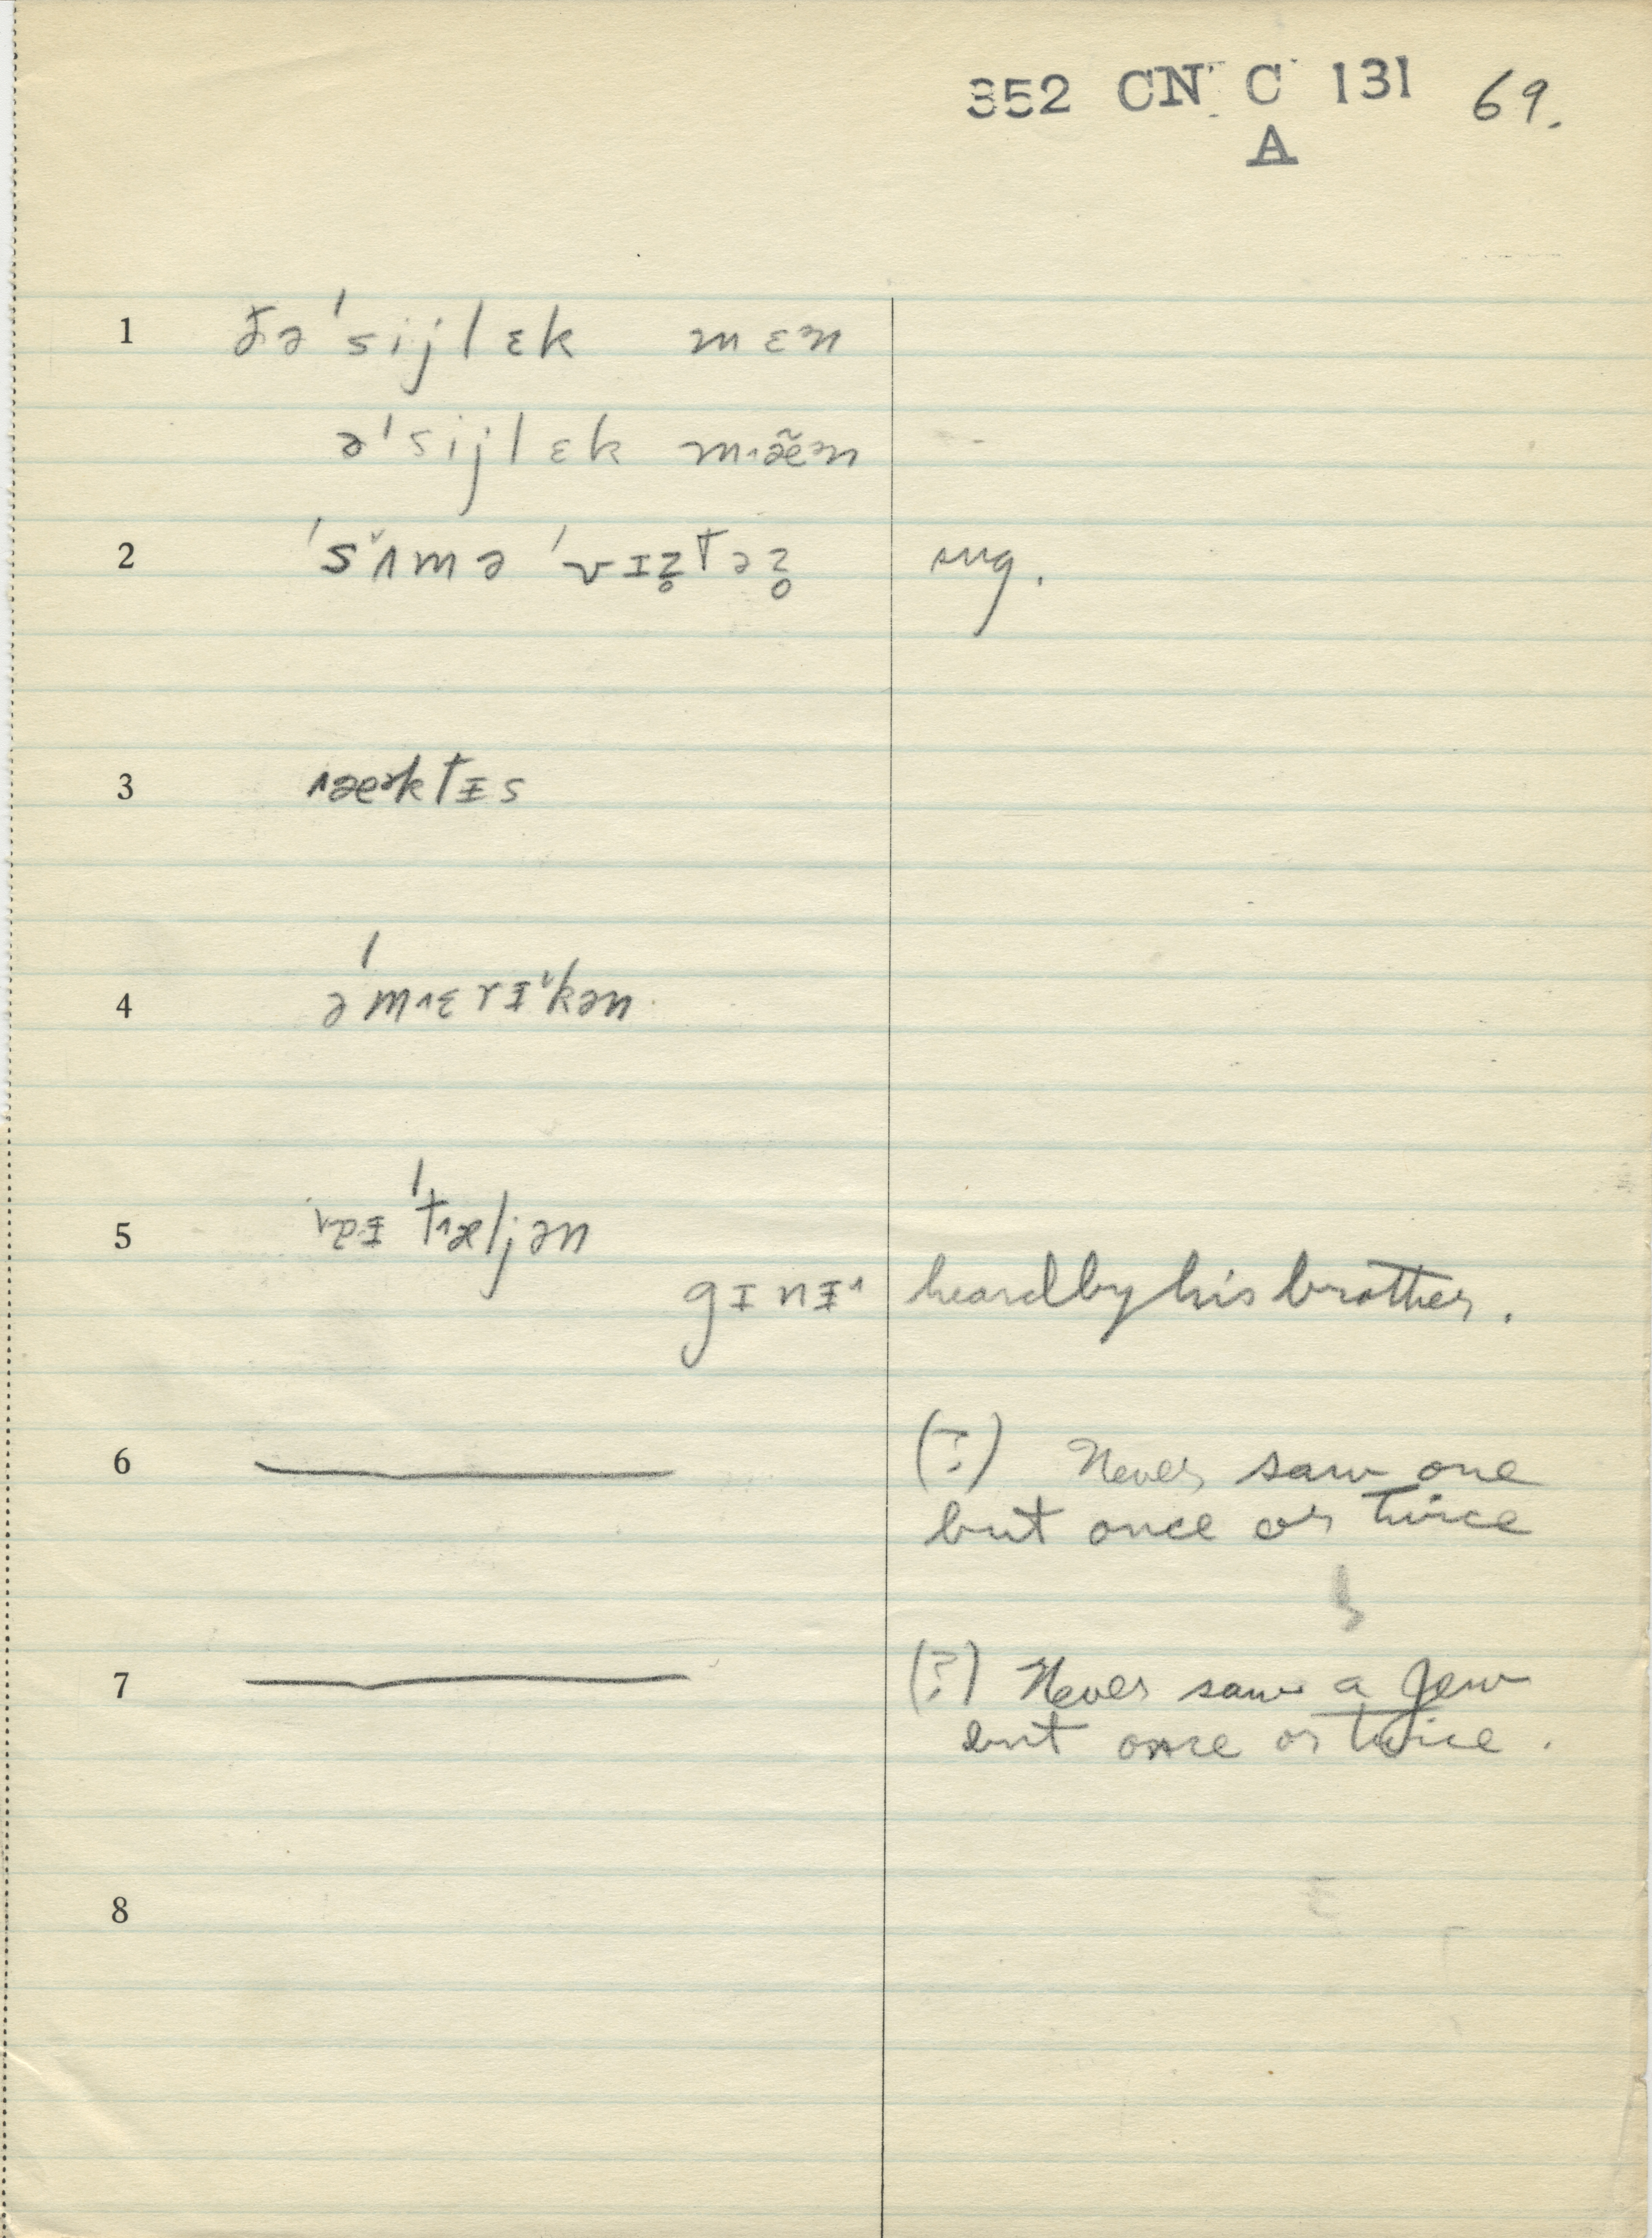 352 CN C 131 69.
A
1 ðə ˈsijlɛk mɛn
ə ˈsijlɛk mæ̃n
2 ˈsʌmə ˈvɪz̥təz̥ sug.
3 æktɨs
4 əˈmɛrɨkən
5 ˈtæljən
gɪnɨ heard by his brother.
6 (?) Never saw one
but once or twice
7 (?) Never saw a Jew
but once or twice.
8